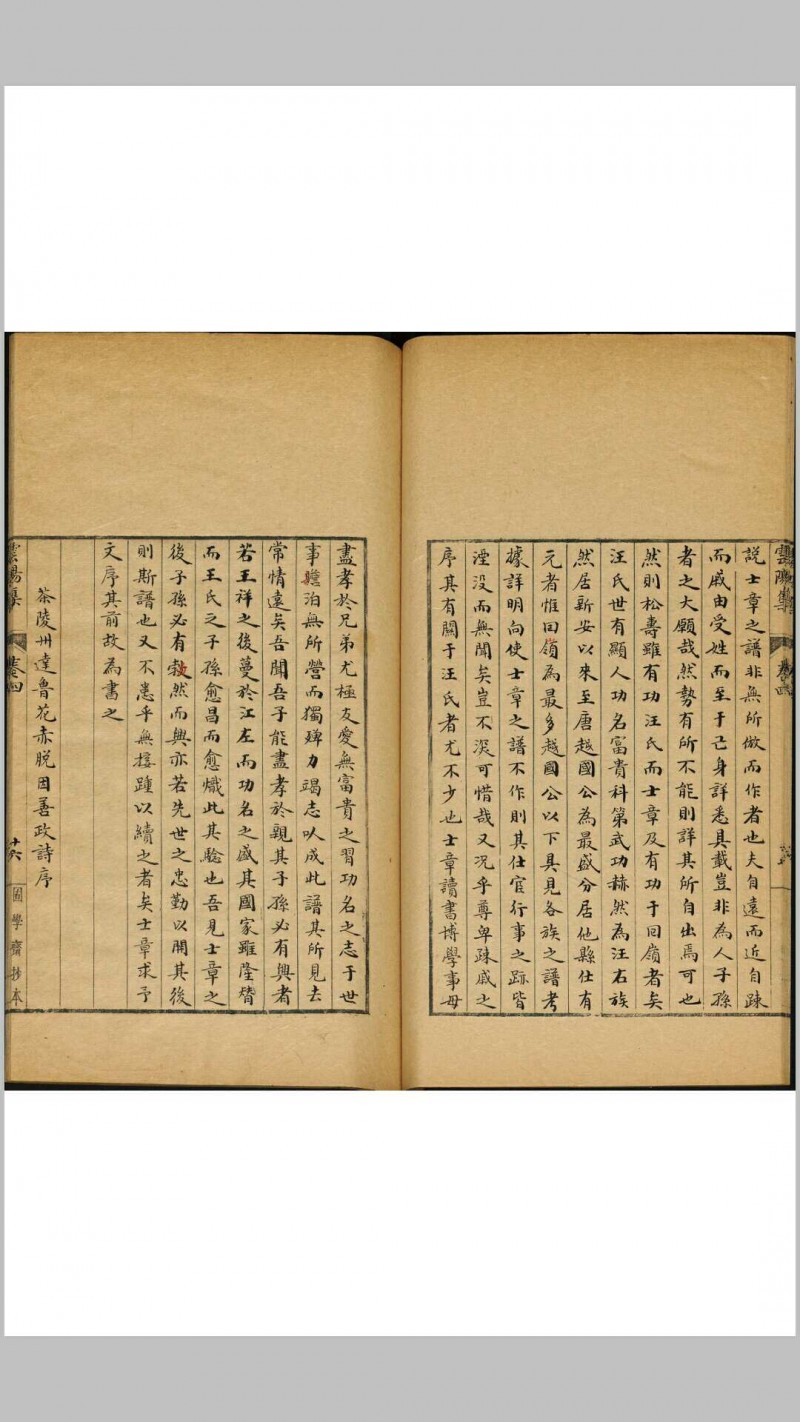 雲陽集 卷四
說士章之譜非無所倣而作者也夫自遠而近自踈
而戚由受姓而至于己身詳悉具載豈非為人子孫
者之大願哉然勢有所不能則詳其所自出焉可也
然則松壽雖有功汪氏而士章及有功于回嶺者矣
汪氏世有顯人功名富貴科第武功赫然為汪右族
然居新安以來至唐越國公為最盛分居他縣仕有
元者惟回嶺為最多越國公以下具見各族之譜考
據詳明向使士章之譜不作則其仕宦行事之跡皆
湮没而無聞矣豈不深可惜哉又況乎尊卑踈戚之
序其有關于汪氏者尤不少也士章讀書博學事母
盡孝於兄弟尤極友愛無富貴之習功名之志于世
事澹泊無所營而獨殫力竭志以成此譜其所見去
常情遠矣吾聞吾子能盡孝於親其子孫必有興者
若王祥之後蔓於江左而功名之盛其國家雖隆替
而王氏之子孫愈昌而愈熾此其驗也吾見士章之
後子孫必有勃然而興亦若先世之忠勤以開其後
則斯譜也又不患乎無接踵以續之者矣士章求予
文序其前故為書之
茶陵州達魯花赤脱因善政詩序
雲陽集 卷四 十六 圓學齋抄本